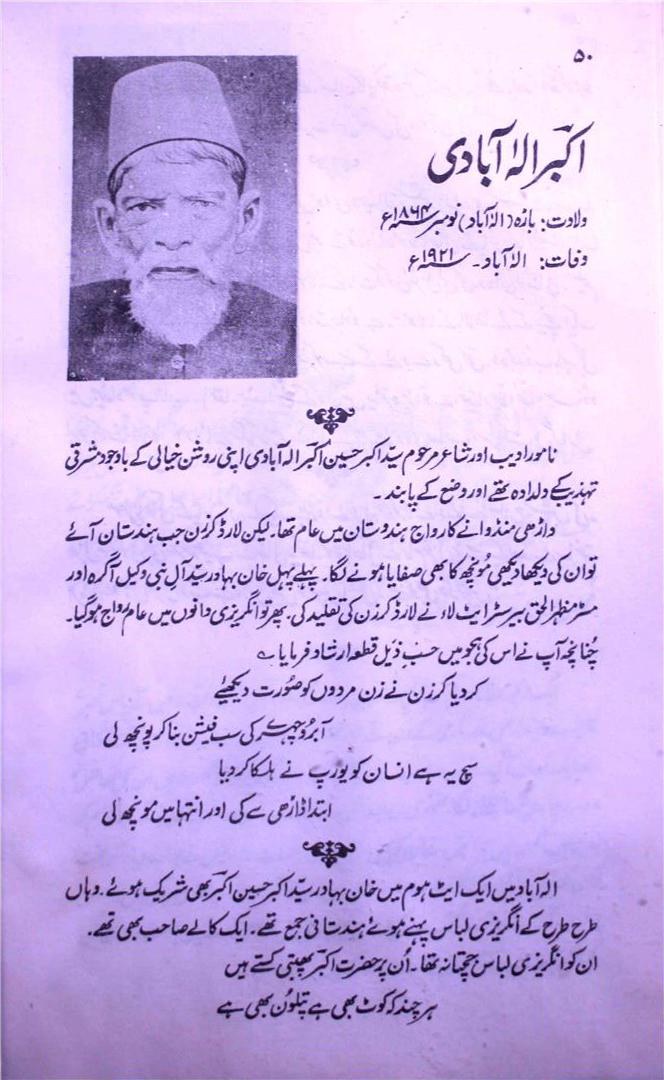 ۵۰
اکبر الہٰ آبادی
ولادت: بازہ (الہٰ آباد) نومبر ۱۸۶۴ء
وفات: الہٰ آباد۔ ۱۹۲۱ء
نامور ادیب اور شاعر مرحوم سیّد اکبر حسین اکبرؔ الہٰ آبادی اپنی روشن خیالی کے باوجود مشرقی
تہذیب کے دلدادہ تھے اور وضع کے پابند۔
داڑھی منڈوانے کا رواج ہندوستان میں عام تھا۔ لیکن لارڈ کرزن جب ہندستان آئے
تو ان کی دیکھا دیکھی مُونچھ کا بھی صفایا ہونے لگا۔ پہلے پہل خان بہادر سیّد آلِ نبی وکیل آگرہ اور
مسٹر مظہر الحق بیرسٹر ایٹ لاء نے لارڈ کرزن کی تقلید کی۔ پھر تو انگریزی دافوں میں عام رواج ہوگیا۔
چُنانچہ آپ نے اس کی ہجو میں حسبِ ذیل قطعہ ارشاد فرمایا ؎
کر دیا کرزن نے زن مردوں کو صُورت دیکھیے
آبرو چہرے کی سب فیشن بنا کر پونچھ لی
سچ یہ ہے انسان کو یورپ نے ہلکا کر دیا
ابتدا ڈاڑھی سے کی اور انتہا میں مونچھ لی
الہٰ آباد میں ایک ایٹ ہوم میں خان بہادر سیّد اکبر حسین اکبرؔ بھی شریک ہوئے۔ وہاں
طرح طرح کے انگریزی لباس پہنے ہوئے ہندستانی جمع تھے۔ ایک کالے صاحب بھی تھے۔
ان کو انگریزی لباس جچتا نہ تھا۔ اُن پر حضرت اکبرؔ پھبتی کستے ہیں
ہر چند کہ کوٹ بھی ہے پتلون بھی ہے